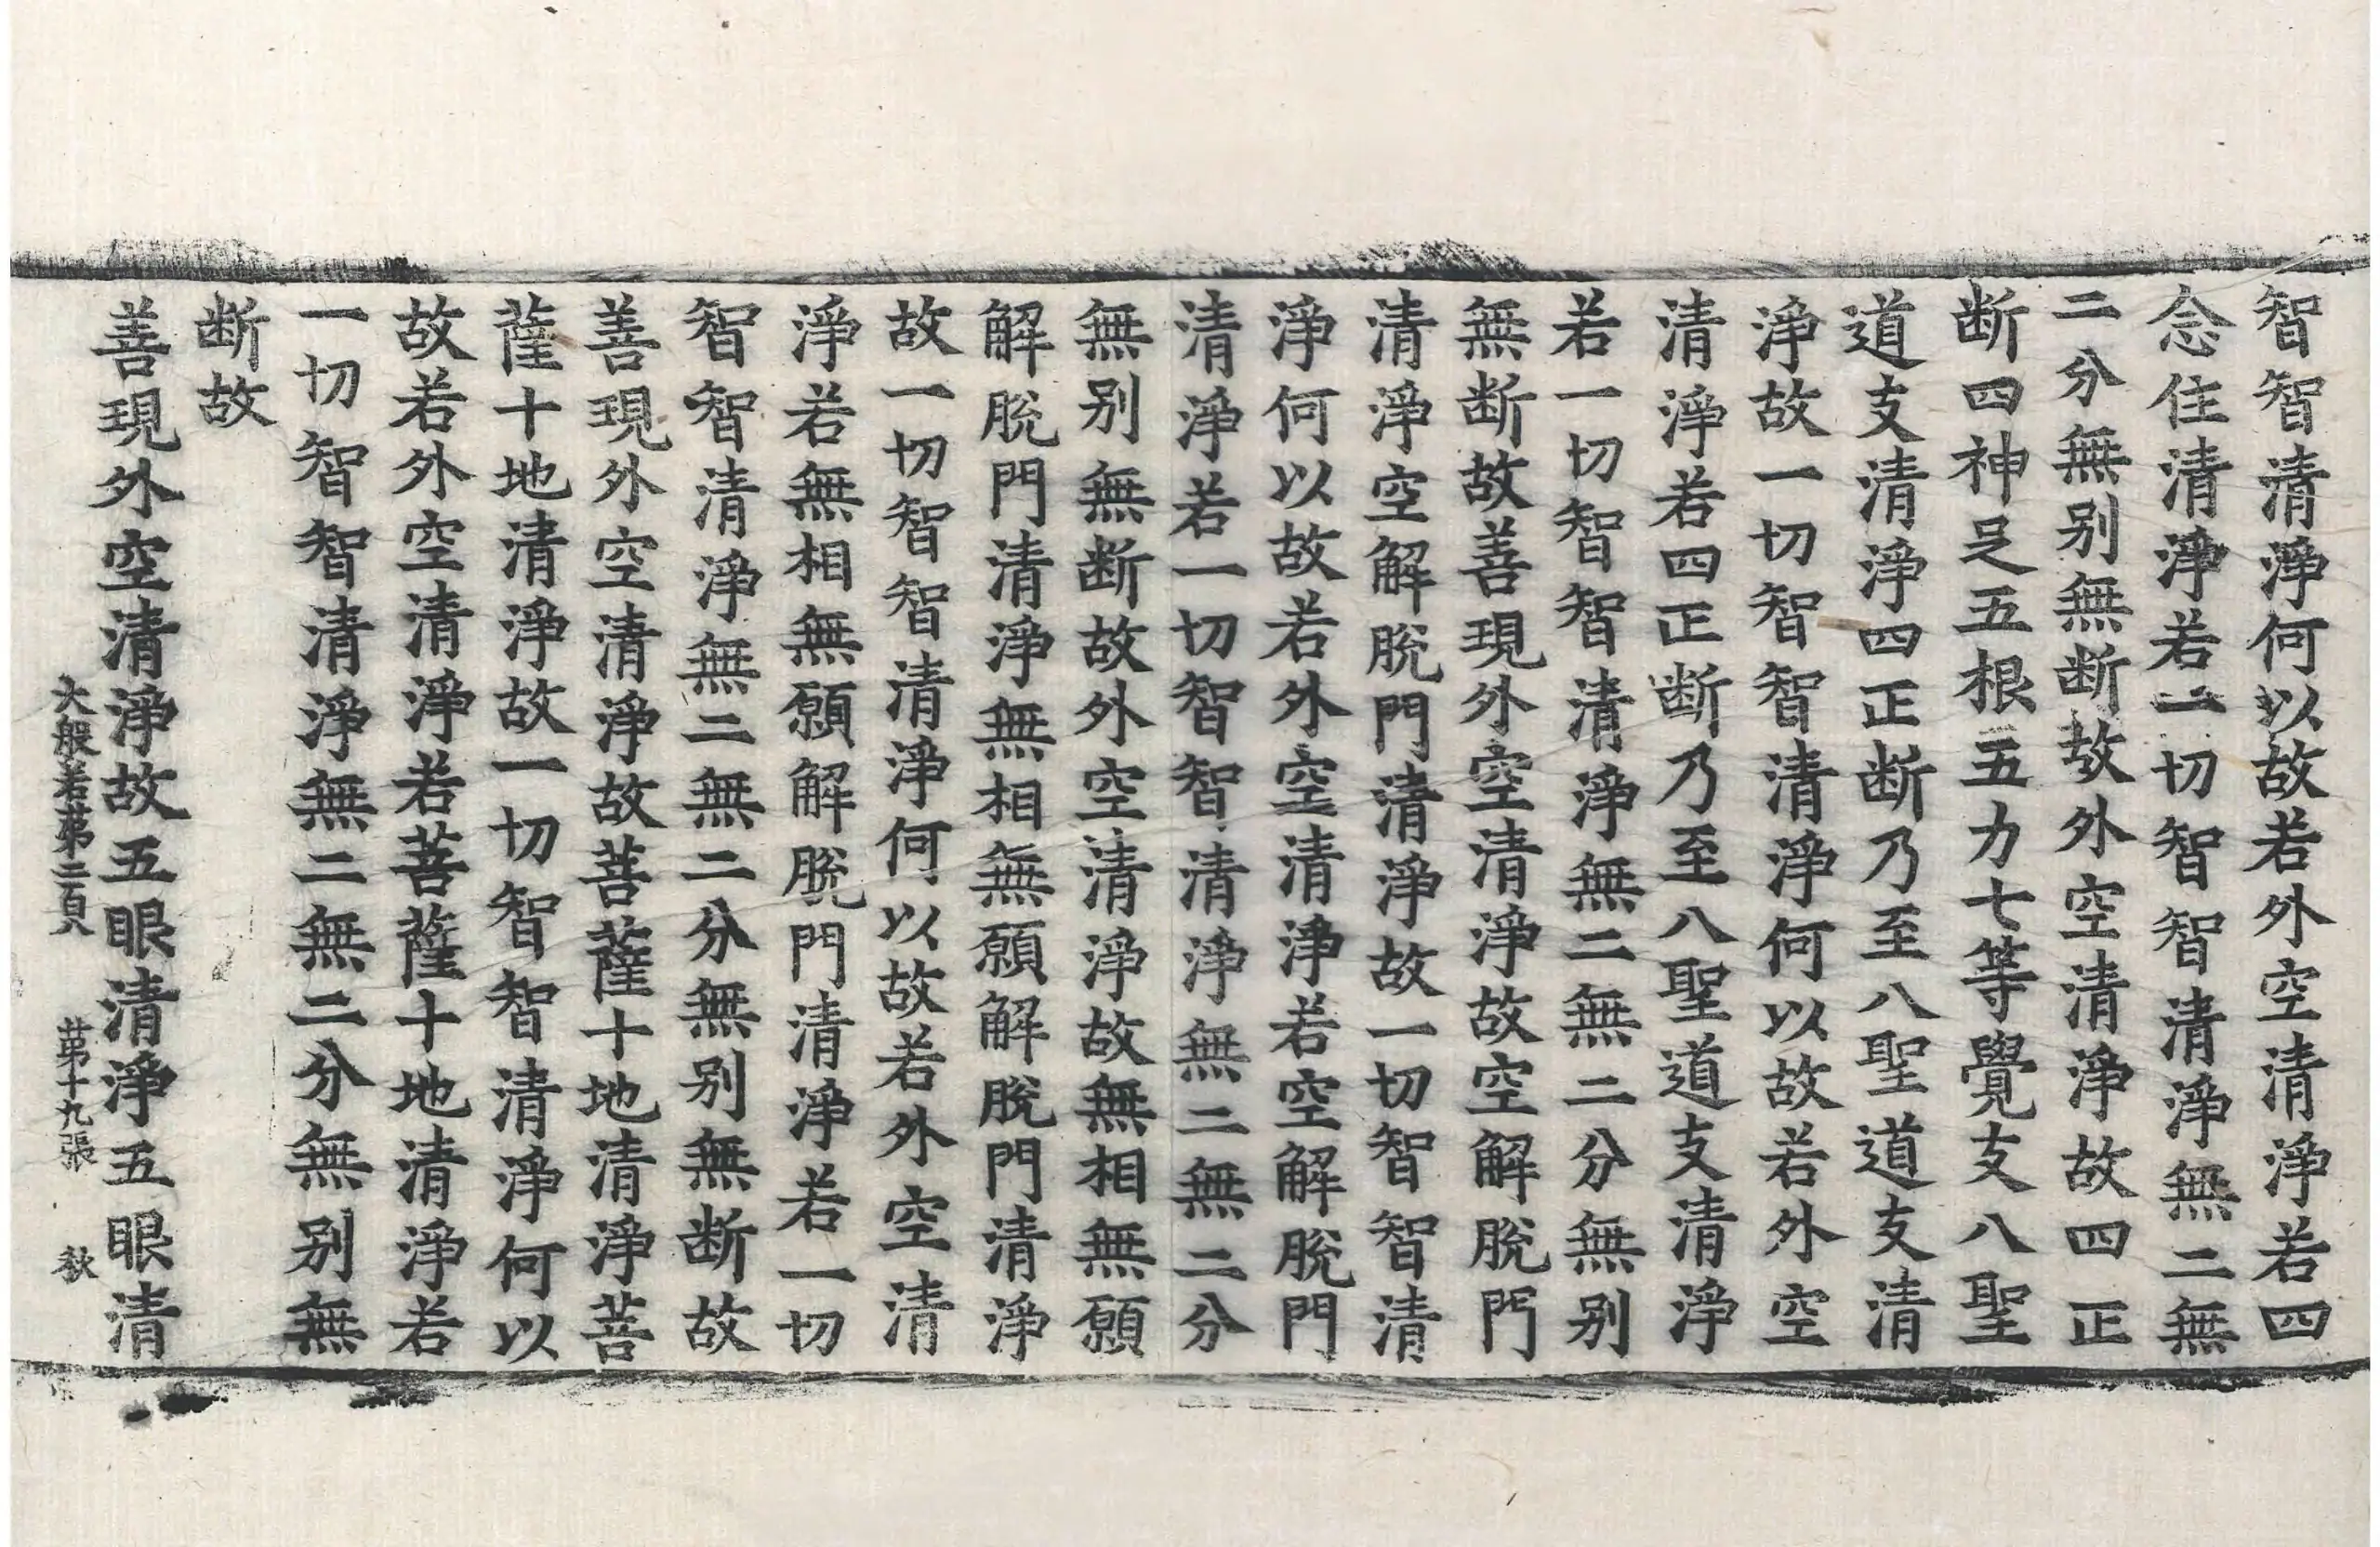 智智清淨何以故若外空清淨若四
念住清淨若一切智智清淨無二無
二分無别無断故外空清淨故四正
断四神足五根五力七等覺支八聖
道支清淨四正断乃至八聖道支清
淨故一切智智清淨何以故若外空
清淨若四正断乃至八聖道支清淨
若一切智智清淨無二無二分無别
無断故善現外空清淨故空解脫門
清淨空解脫門清淨故一切智智清
淨何以故若外空清淨若空解脫門
清淨若一切智智清淨無二無二分
無别無断故外空清淨故無相無願
解脫門清淨無相無願解脫門清淨
故一切智智清淨何以故若外空清
淨若無相無願解脫門清淨若一切
智智清淨無二無二分無别無断故
善現外空清淨故菩薩十地清淨菩
薩十地清淨故一切智智清淨何以
故若外空清淨若菩薩十地清淨若
一切智智清淨無二無二分無别無
断故
善現外空清淨故五眼清淨五眼清
大般若第二百 第十九張 秋